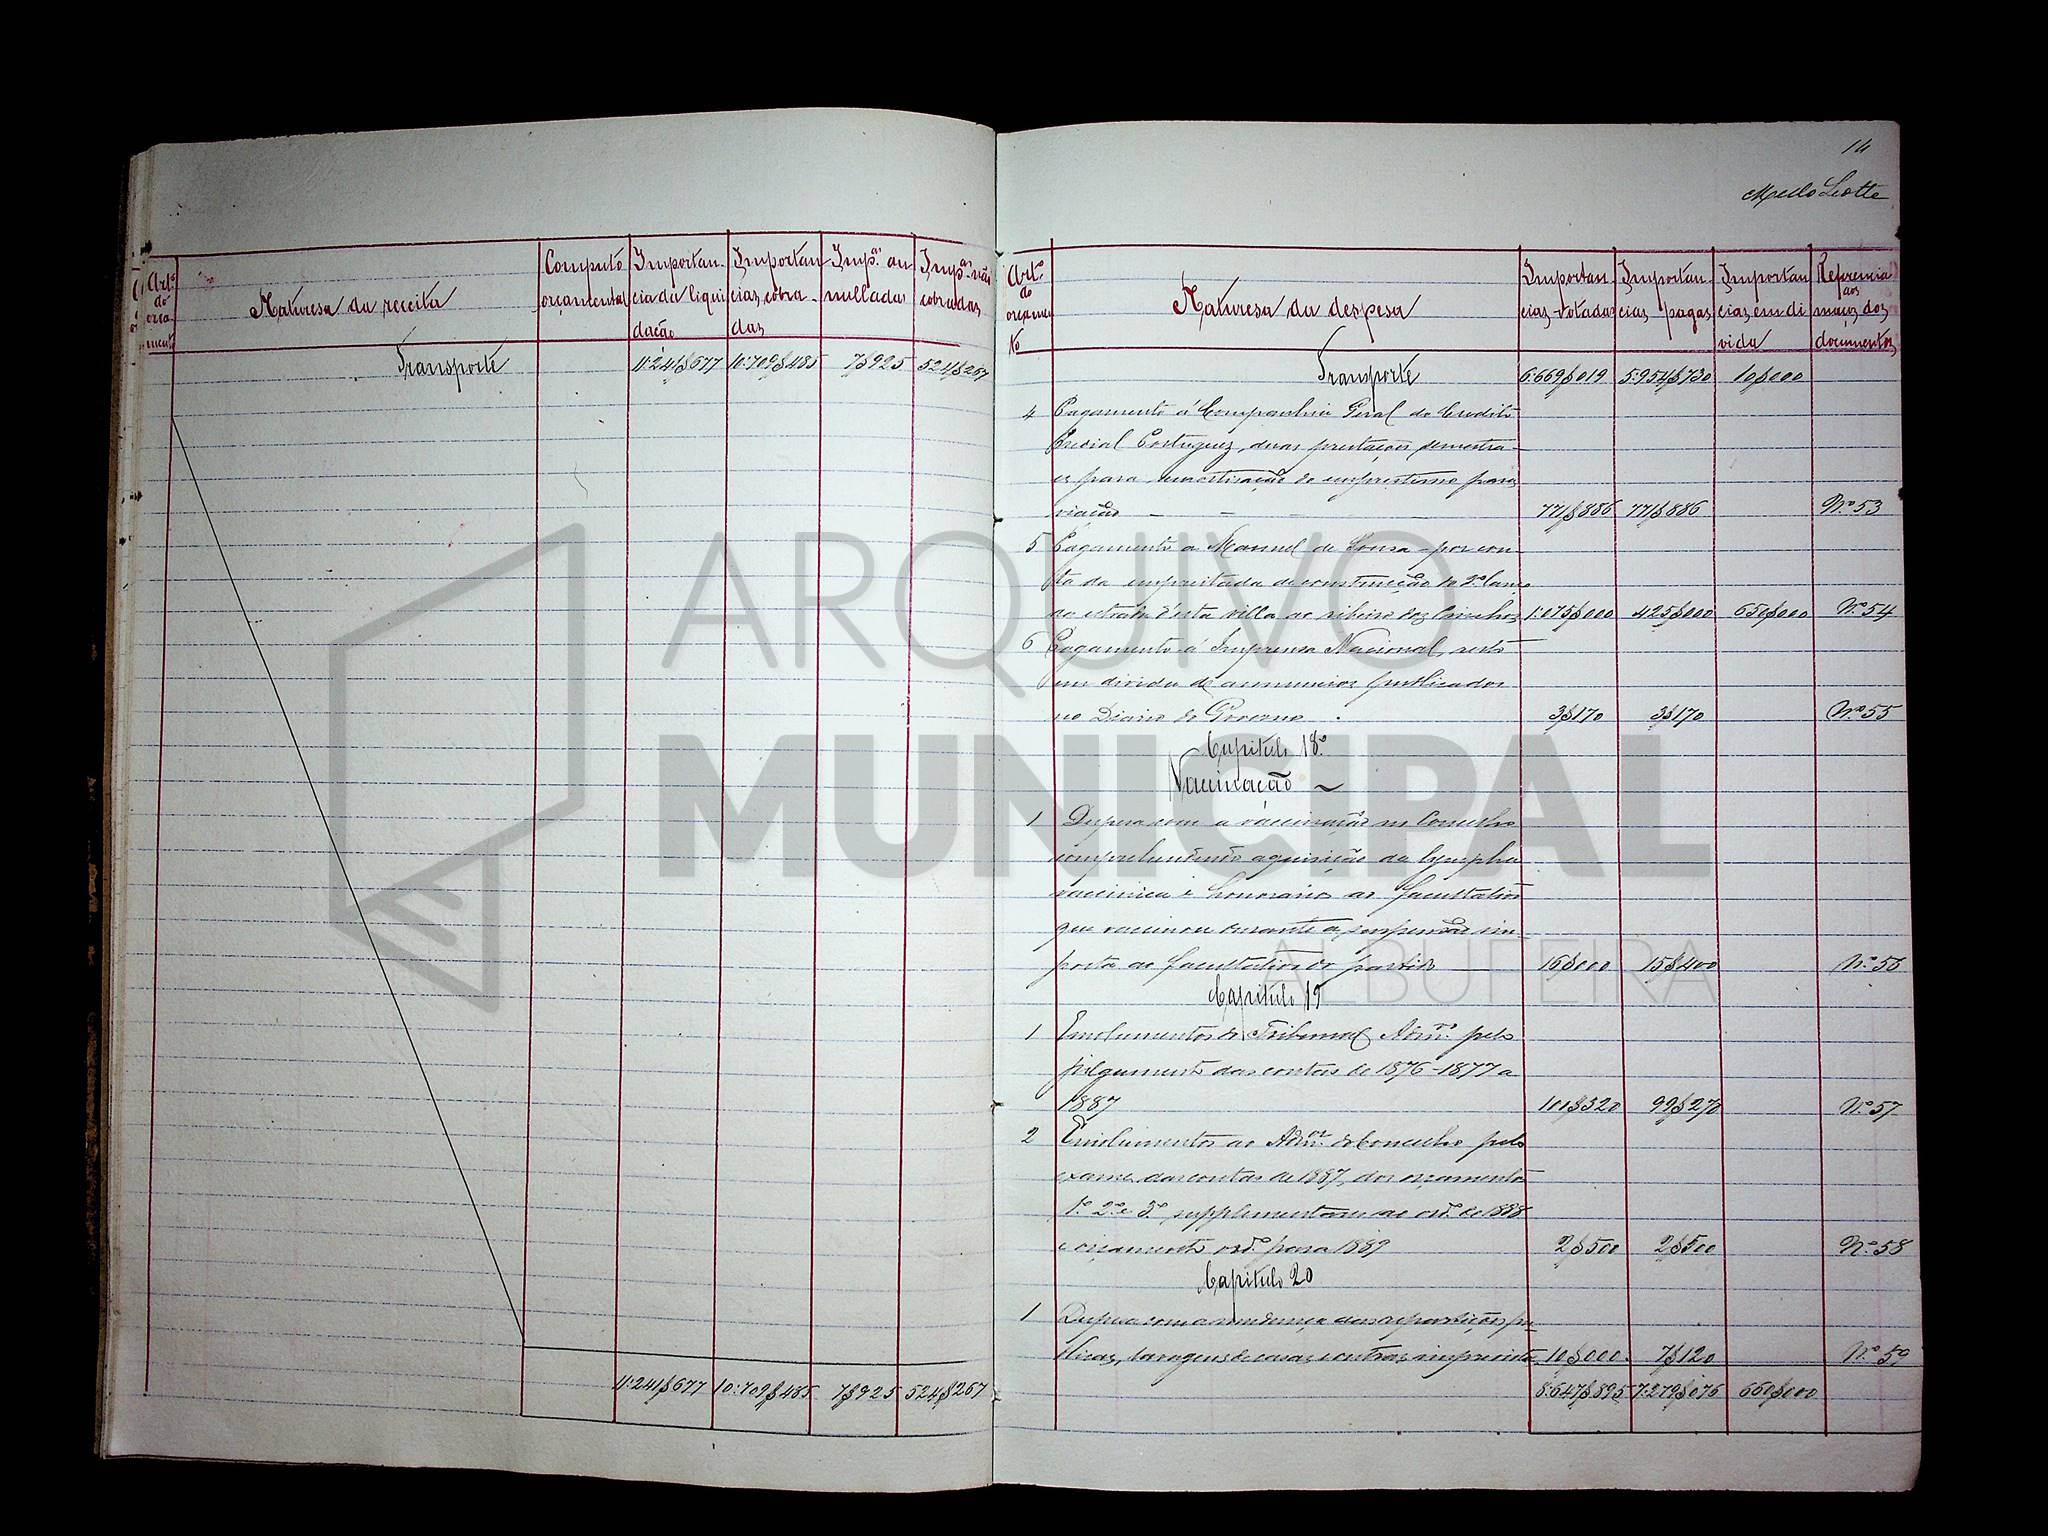 Art.º do orça- mento
Naturesa da receita
Computo orçamental
Importan- cia da liqui- dação
Importan- cias cobra- das
Imp.as an- nulladas
Imp.as não cobradas
Transporte 11:241$677 10:709$485 7$925 524$267
11:241$677 10:709$485 7$925 524$267
14
Mello Leotte
Art.º do orçamen- to
Naturesa da despesa
Importan- cias votadas
Importan- cias pagas
Importan- cias em di- vida
Referencia aos maços dos documentos
Transporte 6:669$019 5:954$730 10$000
4 Pagamento á Companhia Geral do Credito
Predial Portuguez, duas prestações semestra-
es para amortisação do emprestimo para
viação — — — — 771$886 771$886 N.º 53
5 Pagamento a Manuel de Sousa - por con-
ta da empreitada de construcção do 2.º lanço
da estrada d'esta villa ao ribeiro dos 1:075$000 425$000 650$000 N.º 54
6 Pagamento á Imprensa Nacional, resto
em divida de annuncios publicados
no Diario do Governo . 3$170 3$170 N.º 55
Capitulo 18.º
Vaccinação ~
1 Despesa com a vaccinação no Concelho
comprehendendo aquisição da lympha
vaccinica e honorarios ao facultativo
que vaccinou durante a suspensão im-
posta ao facultativo do partido — 16$000 15$400 N.º 56
Capitulo 19
1 Emolumentos do Tribunal Adm.vo pelo
julgamento das contas de 1876-1877 a
1887 101$320 99$270 N.º 57
2 Emolumentos ao Adm.or do Concelho pelo
exame das contas de 1887, dos orçamentos
1.º 2.º e 3.º supplementares ao ord.º de 1888
e orçamento ord.º para 1889 2$500 2$500 N.º 58
Capitulo 20
1 Despesa com a mudança das repartições pu-
blicas, de casas e outras imprevistas 10$000 7$120 N.º 59
8:647$895 7:279$076 660$000
ARQUIVO
MUNICIPAL
ALBUFEIRA